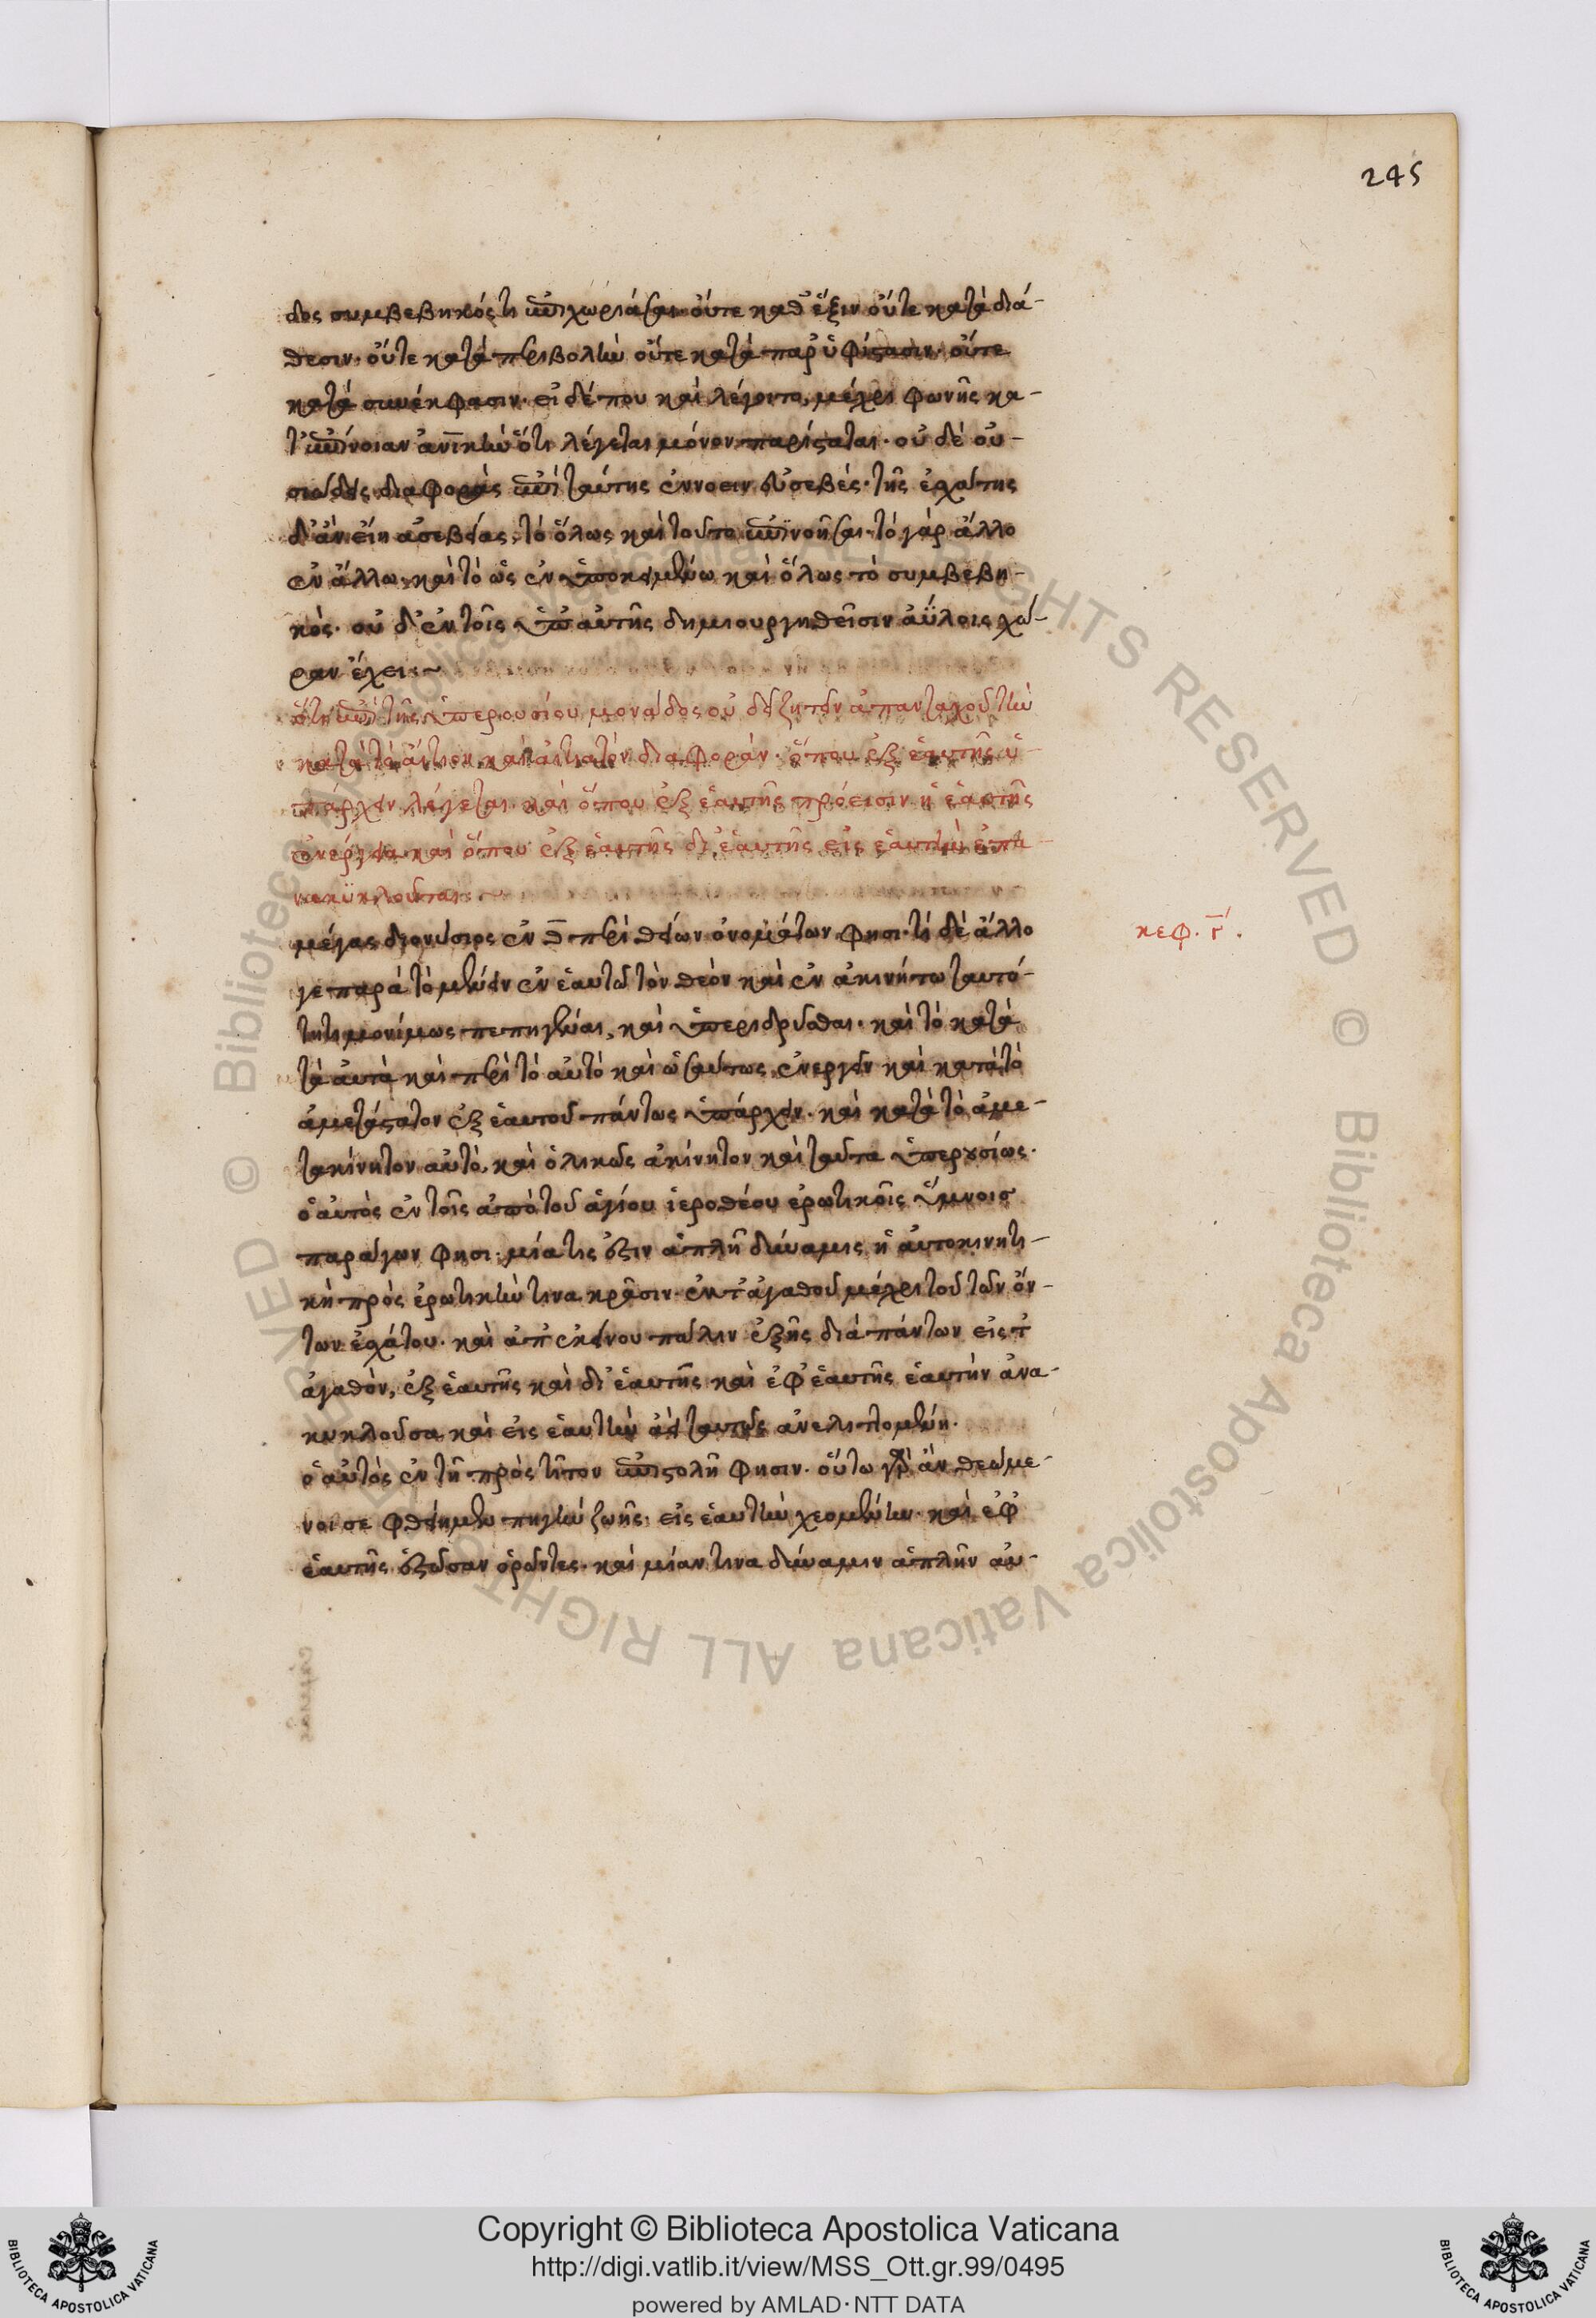 245
δος συμβεβηκός τι ἐπιχωριάσαι· οὔτε καθ' ἕξιν οὔτε κατὰ διά-
θεσιν· οὔτε κατὰ περιβολὴν οὔτε κατὰ παρυφίστασιν· οὔτε
κατὰ συνέκφασιν· εἰ δέ που καὶ λέγοιτο, μέχρι φωνῆς κα-
τ' ἐπίνοιαν ὅτι λέγεται μόνον παρίσταται· οὐδὲ οὐ-
σιώδεις διαφορὰς ἐπὶ ταύτης ἐννοεῖν εὐσεβές· τῆς ἐσχάτης
δ' ἂν εἴη ἀσεβείας, τὸ ὅλως καὶ τοῦτο ἐπινοῆσαι· τὸ γὰρ ἄλλο
ἐν ἄλλω, καὶ τὸ ὡς ἐν ὑποκειμένω καὶ ὅλως τὸ συμβεβη-
κὸς· οὐδ' ἐν τοῖς ὑπ' αὐτῆς δημιουργηθεῖσιν ἀΰλοις χώ-
ραν ἔχει ~
ὅτι ἐπὶ τῆς ὑπερουσίου μονάδος οὐ δεῖ ζητεῖν ἁπανταχοῦ τὴν
κατὰ τὸ αἴτιον καὶ αἰτιατὸν διαφοράν· ὅπου ἐξ ἑαυτῆς ὑ-
πάρχειν λέγεται· καὶ ὅπου ἐξ ἑαυτῆς πρόεισιν ἡ ἑαυτῆς
ἐνέργεια καὶ ὅπου ἐξ ἑαυτῆς δι' ἑαυτῆς εἰς ἑαυτὴν ἐπα-
νακυκλοῦται ~
κεφ. γ .
μέγας διονύσιος ἐν θ περὶ θείων ὀνομάτων φησι· τί δὲ ἄλλο
γε παρὰ τὸ μένειν ἐν ἑαυτῶ τὸν θεὸν καὶ ἐν ἀκινήτω ταυτό-
τητι μονίμως πεπηγέναι, καὶ ὑπεριδρύσθαι· καὶ τὸ κατὰ
τὰ αὐτὰ καὶ περὶ τὸ αὐτὸ καὶ ὡσαύτως ἐνεργεῖν καὶ κατὰ τὸ
ἀμετάστατον ἐξ ἑαυτοῦ πάντως ὑπάρχειν· καὶ κατὰ τὸ ἀμε-
τακίνητον αὐτὸ, καὶ ὁλικῶς ἀκίνητον καὶ ταῦτα ὑπερουσίως·
ὁ αὐτὸς ἐν τοῖς ἀπὸ τοῦ ἁγίου ἱεροθέου ἐρωτικοῖς ὕμνοις
παράγων φησι· μία τις ἔστιν ἁπλῆ δύναμις ἡ αὐτοκινητι-
κὴ πρὸς ἐρωτικὴν τινα κρᾶσιν· ἐκ τἀγαθοῦ μέχρι τοῦ τῶν ὄν-
των ἐσχάτου· καὶ ἀπ' ἐκείνου πάλιν ἑξῆς διὰ πάντων εἰς τ'
ἀγαθὸν, ἐξ ἑαυτῆς καὶ δι' ἑαυτῆς καὶ ἐφ' ἑαυτῆς ἑαυτὴν ἀνα-
κυκλοῦσα καὶ εἰς ἑαυτὴν ἀεὶ ταυτῶς ἀνελιττομένη.
ὁ αὐτὸς ἐν τῆ πρὸς τίτον ἐπιστολῆ φησιν· οὕτω γὰρ ἂν θεώμε-
νοι σε πηγὴν ζωῆς· εἰς ἑαυτὴν χεομένην· καὶ ἐφ'
ἑαυτῆς ἑστῶσαν ὁρῶντες· καὶ μίαν τινα δύναμιν ἁπλῆν αὐ-
Copyright © Biblioteca Apostolica Vaticana
http://digi.vatlib.it/view/MSS_Ott.gr.99/0495
powered by AMLAD·NTT DATA